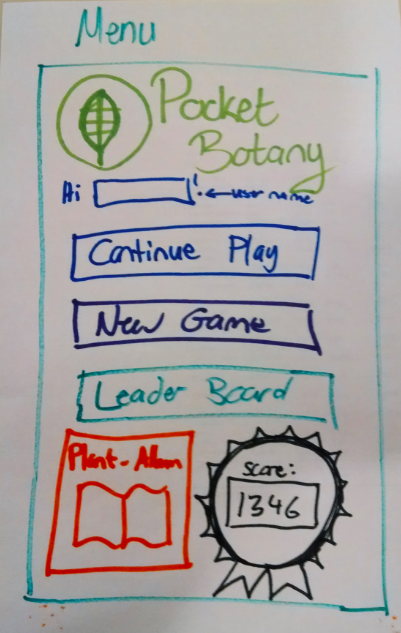 Menu
Pocket
Botany
Hi ! ← user name
Continue Play
New Game
Leader Board
Plant-Album
score:
1346